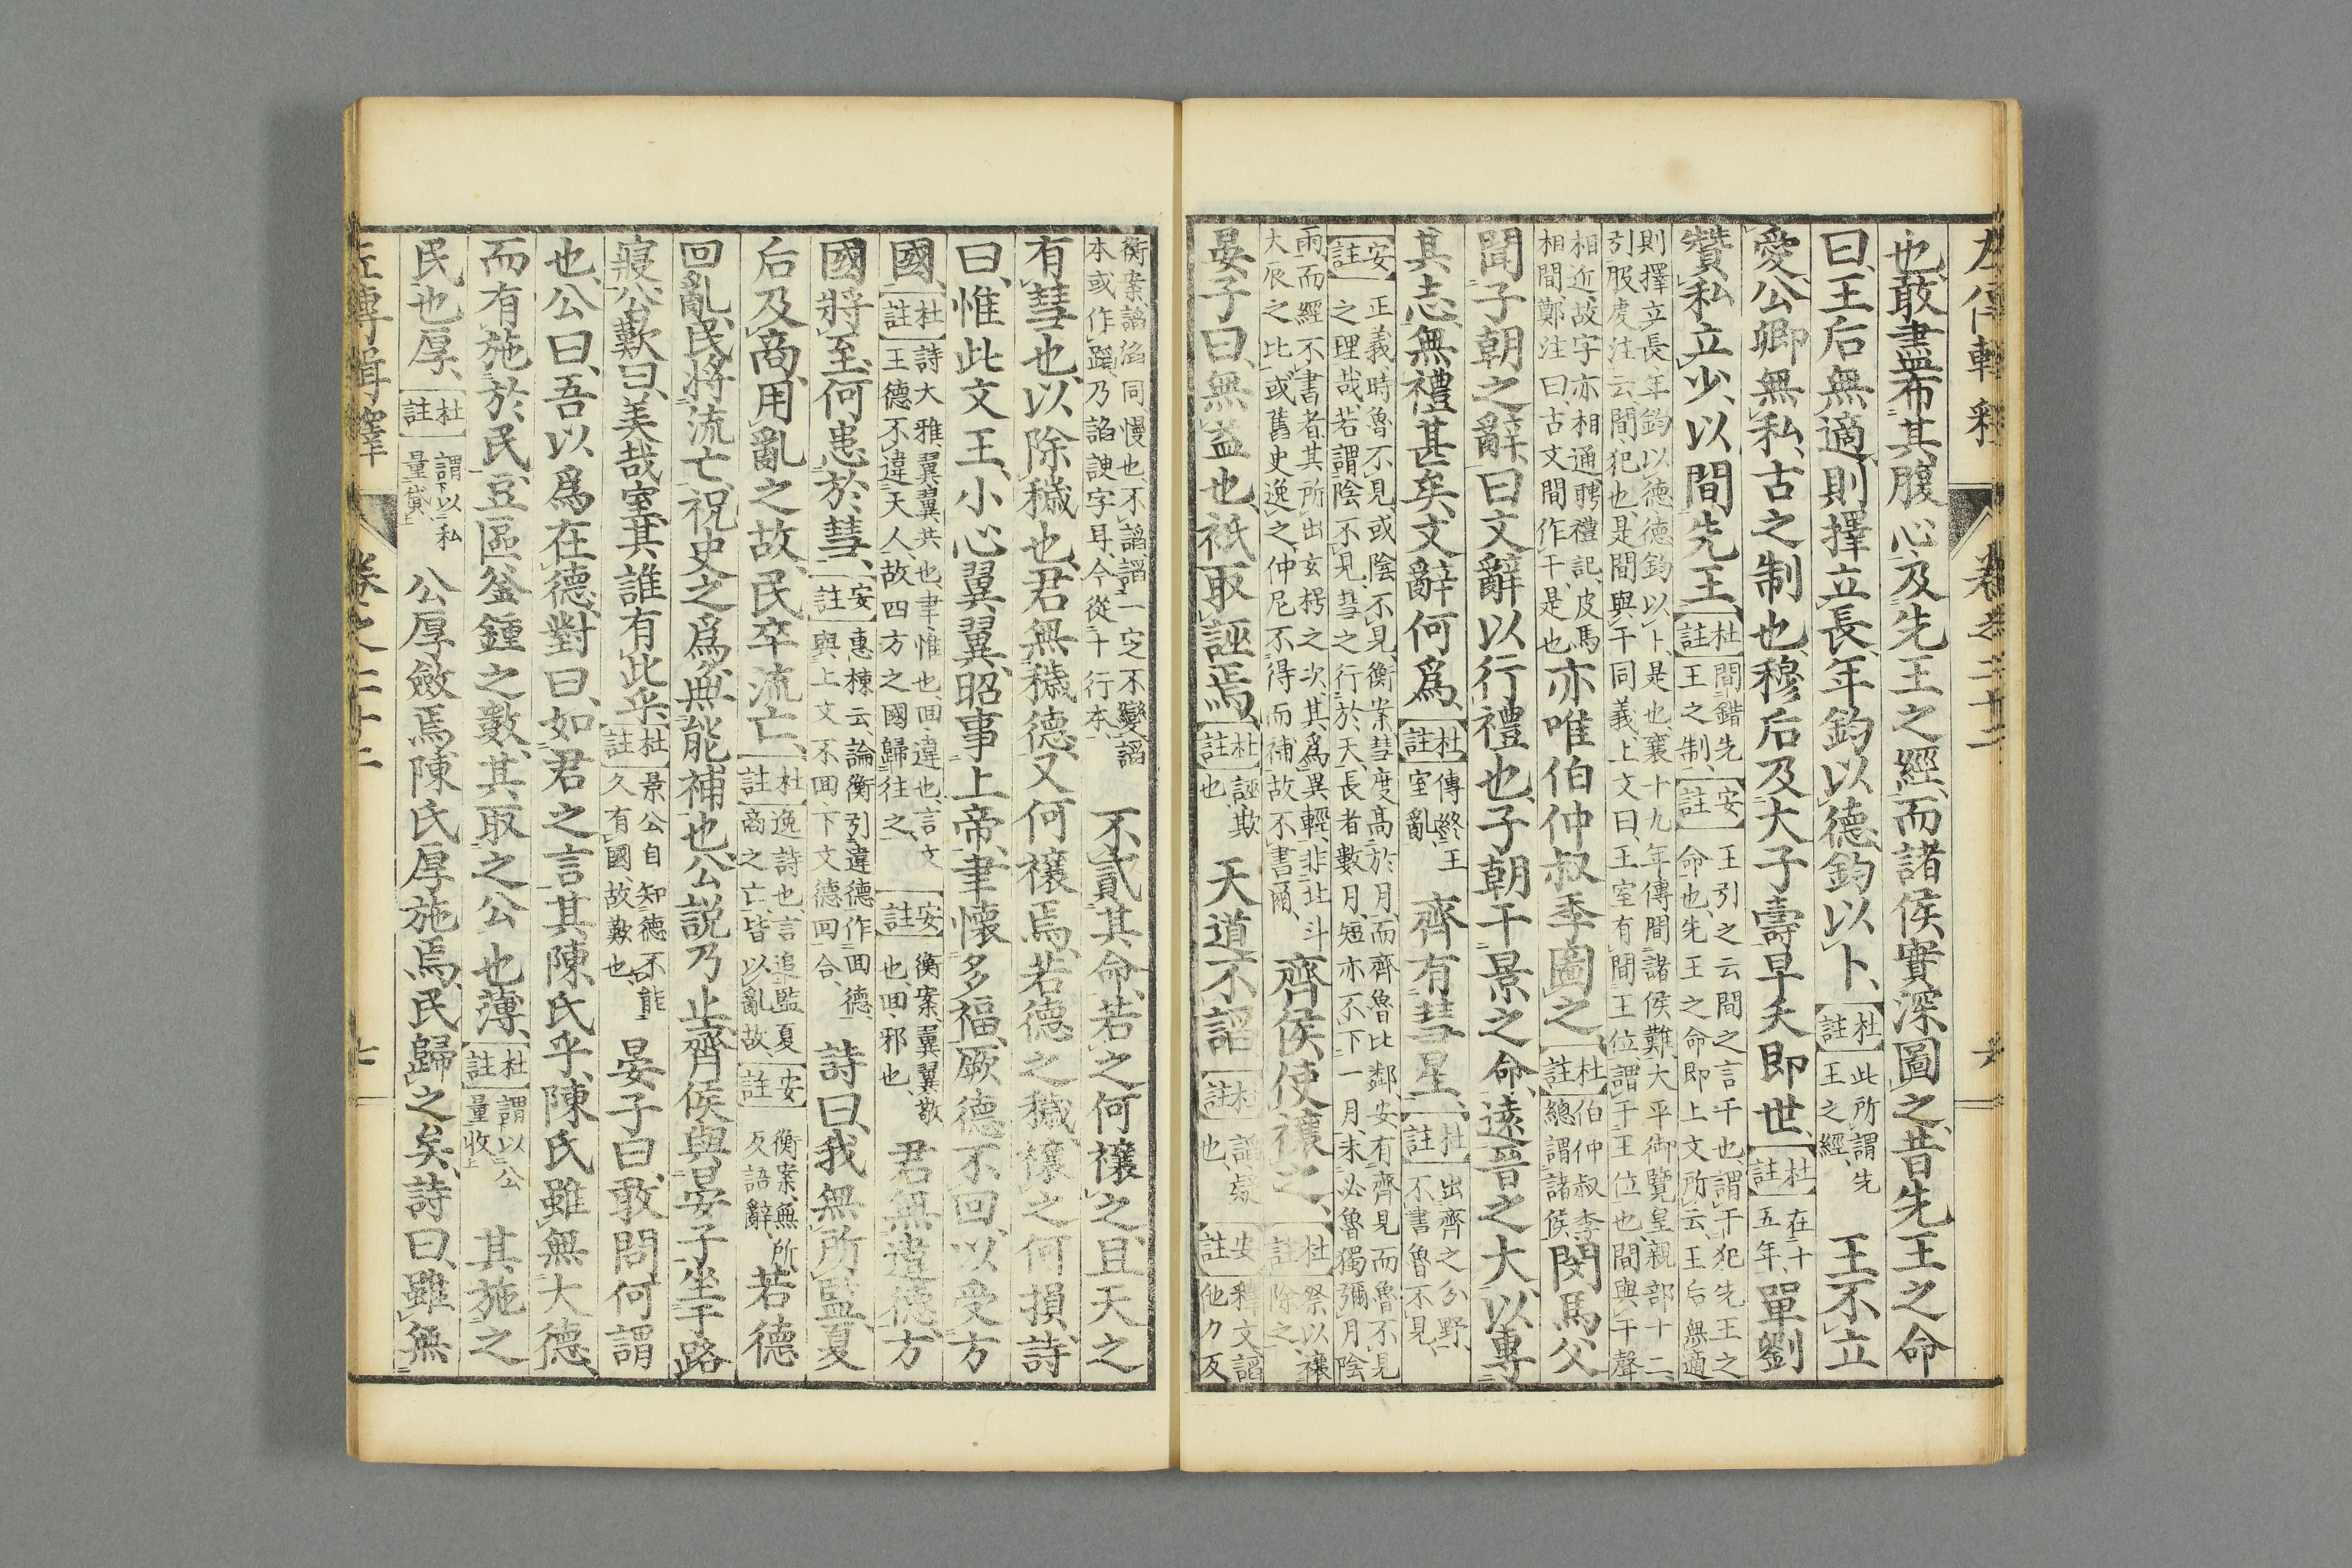 左傳輯釋 卷之二十二
也敢盡布其腹心及先王之經而諸侯實深圖之昔先王之命
曰王后無適則擇立長年鈞以德德鈞以卜【杜註】此所謂先王之經 王不立
愛公卿無私古之制也穆后及大子壽早夭即世【杜註】在十五年 單劉
贊私立少以間先王【杜註】間錯先王之制【安註】王引之云間之言干也謂干犯先王之命也先王之命即上文所云王后無適
則擇立長年鈞以德德鈞以卜是也襄十九年傳間諸侯難大平御覽皇親部十二引服虔注云間犯也是間與干同義上文曰王室有間王位謂干王位也間與干聲
相近故字亦相通聘禮記皮馬相間鄭注曰古文間作干是也 亦唯伯仲叔季圖之【杜註】伯仲叔季總謂諸侯 閔馬父
聞子朝之辭曰文辭以行禮也子朝干景之命遠晉之大以專
其志無禮甚矣文辭何爲【杜註】傳終王室亂 齊有彗星【杜註】出齊之分野不書魯不見
【安註】正義時魯不見或陰不見衡案彗度高於月而齊魯比鄰安有齊見而魯不見之理哉若謂陰不見彗之行於天長者數月短亦不下一月未必魯獨彌月陰
雨而經不書者其所出玄枵之次其爲異輕非北斗大辰之比或舊史逸之仲尼不得而補故不書爾 齊侯使禳之【杜註】祭以禳除之
晏子曰無益也祇取誣焉【杜註】誣欺也 天道不謟【杜註】謟疑也【安註】釋文謟他刀反
衡案謟滔同慢也不謟謟一定不變謟本或作蹈乃諂諛字耳今從十行本 不貳其命若之何禳之且天之
有彗也以除穢也君無穢德又何禳焉若德之穢禳之何損詩
曰惟此文王小心翼翼昭事上帝聿懷多福厥德不回以受方
國【杜註】詩大雅翼翼共也聿惟也回違也言文王德不違天人故四方之國歸往之【安註】衡案翼翼敬也回邪也 君無違德方
國將至何患於彗【安註】惠棟云論衡引違德作回德與上文不回下文德回合 詩曰我無所監夏
后及商用亂之故民卒流亡【杜註】逸詩也言追監夏商之亡皆以亂故【安註】衡案無所反語辭 若德
回亂民將流亡祝史之爲無能補也公說乃止齊侯與晏子坐于路
寢公歎曰美哉室其誰有此乎【杜註】景公自知德不能久有國故歎也 晏子曰敢問何謂
也公曰吾以爲在德對曰如君之言其陳氏乎陳氏雖無大德
而有施於民豆區釜鍾之數其取之公也薄【杜註】謂以公量收 其施之
民也厚【杜註】謂以私量貸 公厚斂焉陳氏厚施焉民歸之矣詩曰雖無
左傳輯釋 卷之二十二 七